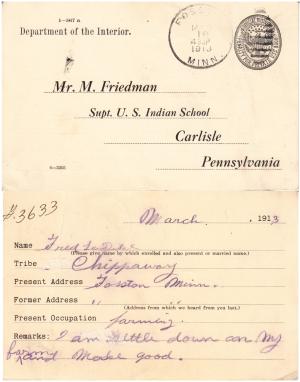 1-567 a
Department of the Interior.
MINN.
1913
Mr. M. Friedman
Supt. U. S. Indian School
Carlisle
Pennsylvania
#3633
March, 1913
Name Fred
(Please give name by which enrolled and also present or married name.)
Tribe Chippaway
Present Address Fosston Minn.
Former Address " "
(Address from which we heard from you last.)
Present Occupation farming
Remarks: I am settle down on My
farm and Made good.